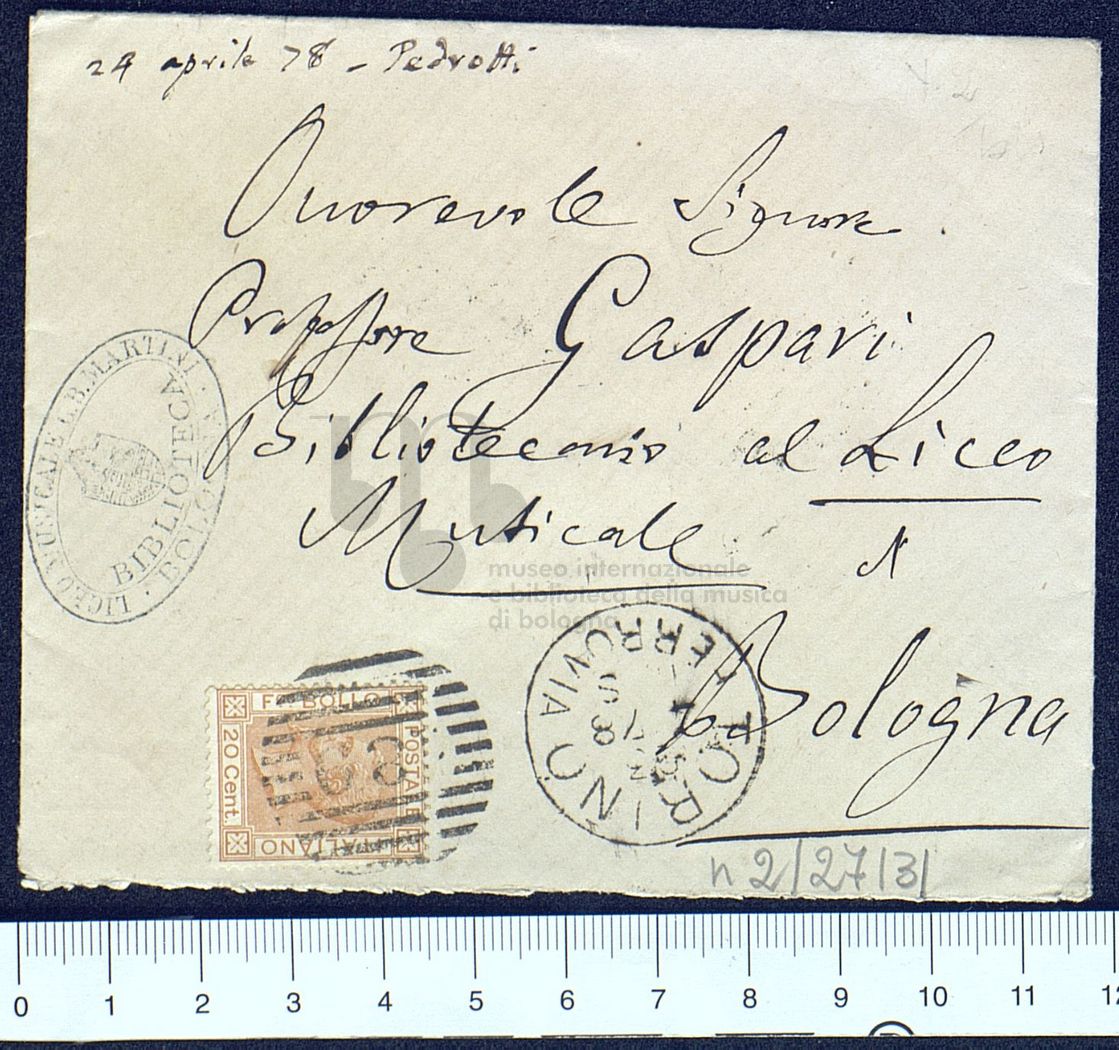 24 aprile 78 - Pedrotti
Onorevole Signore
Professore Gaspari
Bibliotecario al Liceo
Musicale
Bologna
LICEO MUSICALE G.B. MARTINI
BIBLIOTECA
BOLOGNA
museo internazionale
e biblioteca della musica
di bologna
TORINO
FERROVIA
POSTALE
20 Cent.
ITALIANO
BOLLO
n 2/27/3/
0 1 2 3 4 5 6 7 8 9 10 11 12